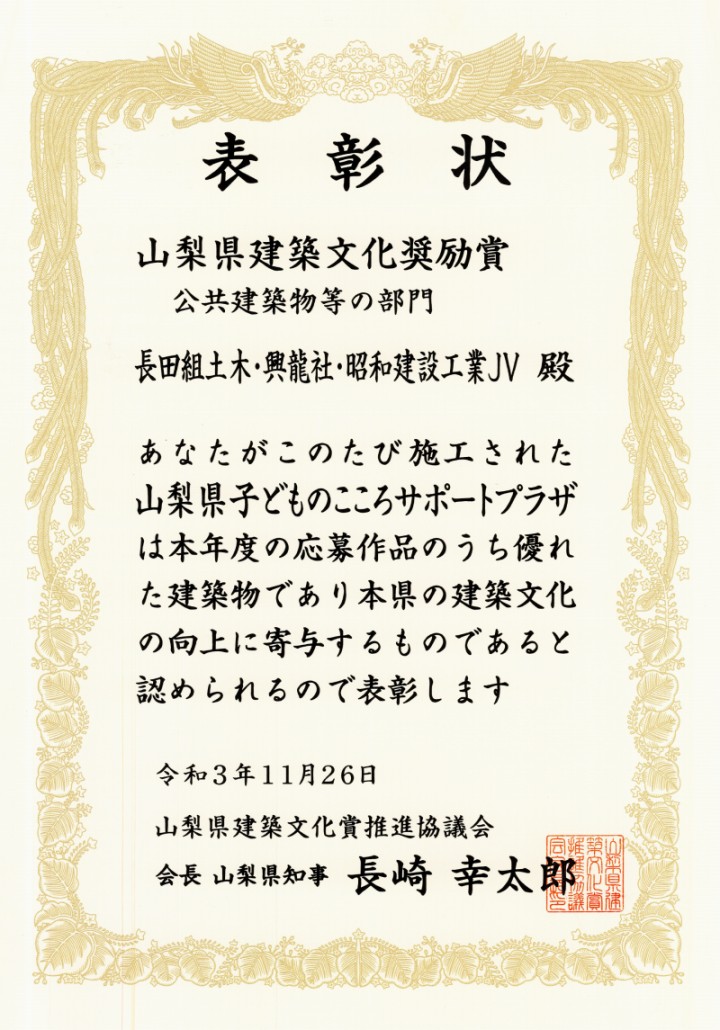 表彰状
山梨県建築文化奨励賞
公共建築物等の部門
長田組土木・興龍社・昭和建設工業JV 殿
あなたがこのたび施工された
山梨県子どものこころサポートプラザ
は本年度の応募作品のうち優れ
た建築物であり本県の建築文化
の向上に寄与するものであると
認められるので表彰します
令和3年11月26日
山梨県建築文化賞推進協議会
会長 山梨県知事 長崎 幸太郎
山梨県建
築文化賞
推進協議